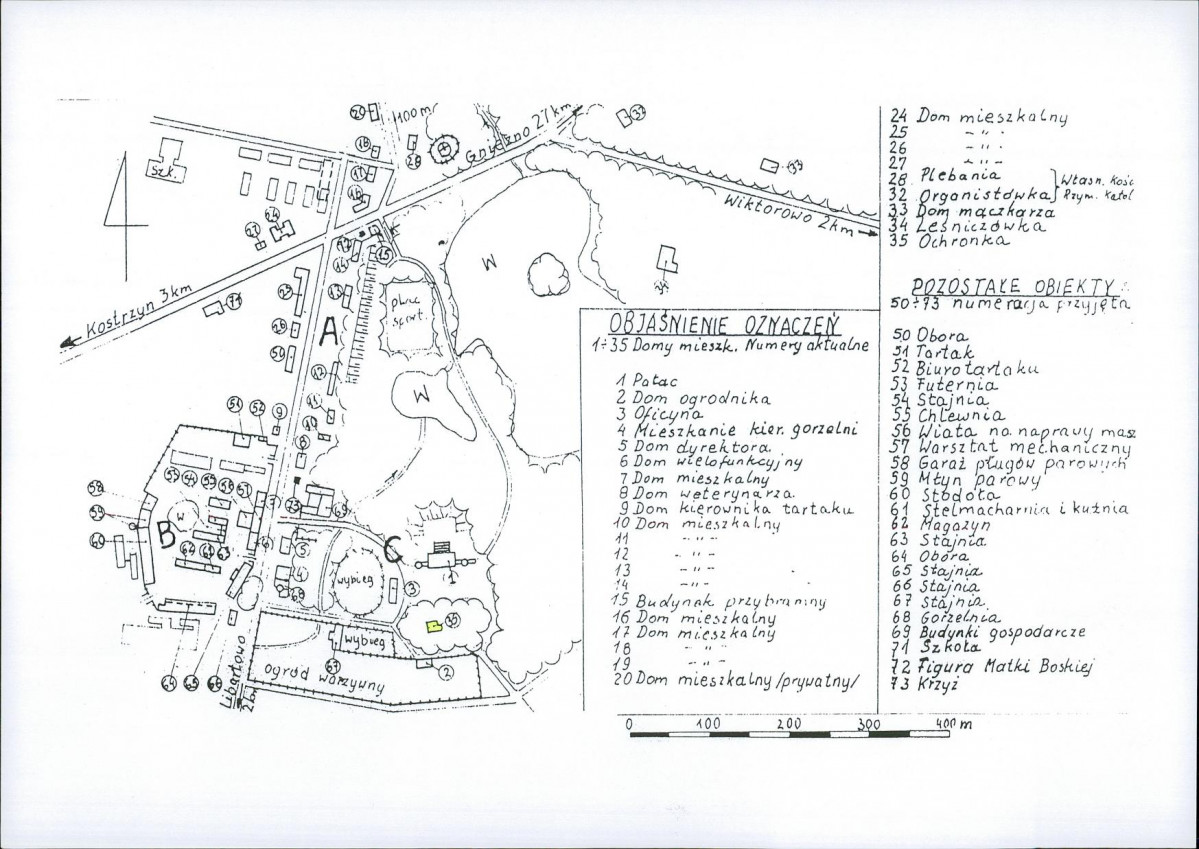 20
100 m
Gniezno 27 km
33
18
28
Szk.
17
33
16
Wiktorowo 2km
24
27
72
15
14
W
34
Kostrzyn 3 km
25
13
plac
sport.
71
A
26
50
12
W
51
52
9
11
10
8
53 54 55 56 57
73
69
7
58
W
59
B
60
6
C
5
62 61
4
wybieg
1
3
68
35
wybieg
67
2
Ogród warzywny
64 65 66
Libartowo
2 km
OBJAŚNIENIE OZNACZEŃ
1÷35 Domy mieszk. Numery aktualne
1 Pałac
2 Dom ogrodnika
3 Oficyna
4 Mieszkanie kier. gorzelni
5 Dom dyrektora
6 Dom wielofunkcyjny
7 Dom mieszkalny
8 Dom weterynarza
9 Dom kierownika tartaku
10 Dom mieszkalny
11 -"-
12 -"-
13 -"-
14 -"-
15 Budynek przybramny
16 Dom mieszkalny
17 Dom mieszkalny
18 -"-
19 -"-
20 Dom mieszkalny /prywatny/
24 Dom mieszkalny
25 -"-
26 -"-
27 -"-
28 Plebania
32 Organistówka
Własn. Kość
Rzym. Katol
33 Dom mączkarza
34 Leśniczówka
35 Ochronka
POZOSTAŁE OBIEKTY:
50÷73 numeracja przyjęta
50 Obora
51 Tartak
52 Biuro tartaku
53 Futernia
54 Stajnia
55 Chlewnia
56 Wiata na naprawy masz
57 Warsztat mechaniczny
58 Garaż pługów parowych
59 Młyn parowy
60 Stodoła
61 Stelmacharnia i kuźnia
62 Magazyn
63 Stajnia
64 Obora
65 Stajnia
66 Stajnia
67 Stajnia
68 Gorzelnia
69 Budynki gospodarcze
71 Szkoła
72 Figura Matki Boskiej
73 Krzyż
0 100 200 300 400 m